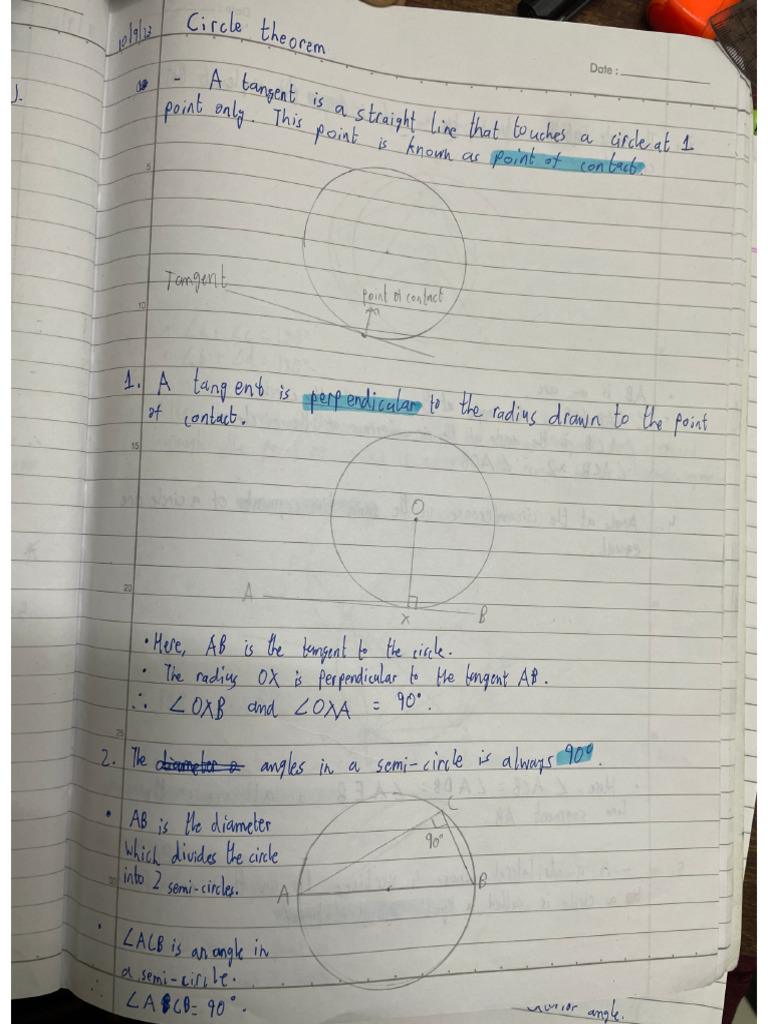 10/9/23
Circle theorem
Date:
- A tangent is a straight line that touches a circle at 1
point only. This point is known as point of contact.
5
Tangent
point of contact
10
1. A tangent is perpendicular to the radius drawn to the point
of contact.
15
O
20
A
X
B
• Here, AB is the tangent to the circle.
• The radius OX is perpendicular to the tangent AB.
∴ ∠OXB and ∠OXA = 90°.
25
2. The angles in a semi-circle is always 90°.
• AB is the diameter
which divides the circle
into 2 semi-circles.
C
90°
A
B
• ∠ACB is an angle in
a semi-circle.
∴ ∠ACB = 90°.
angle.